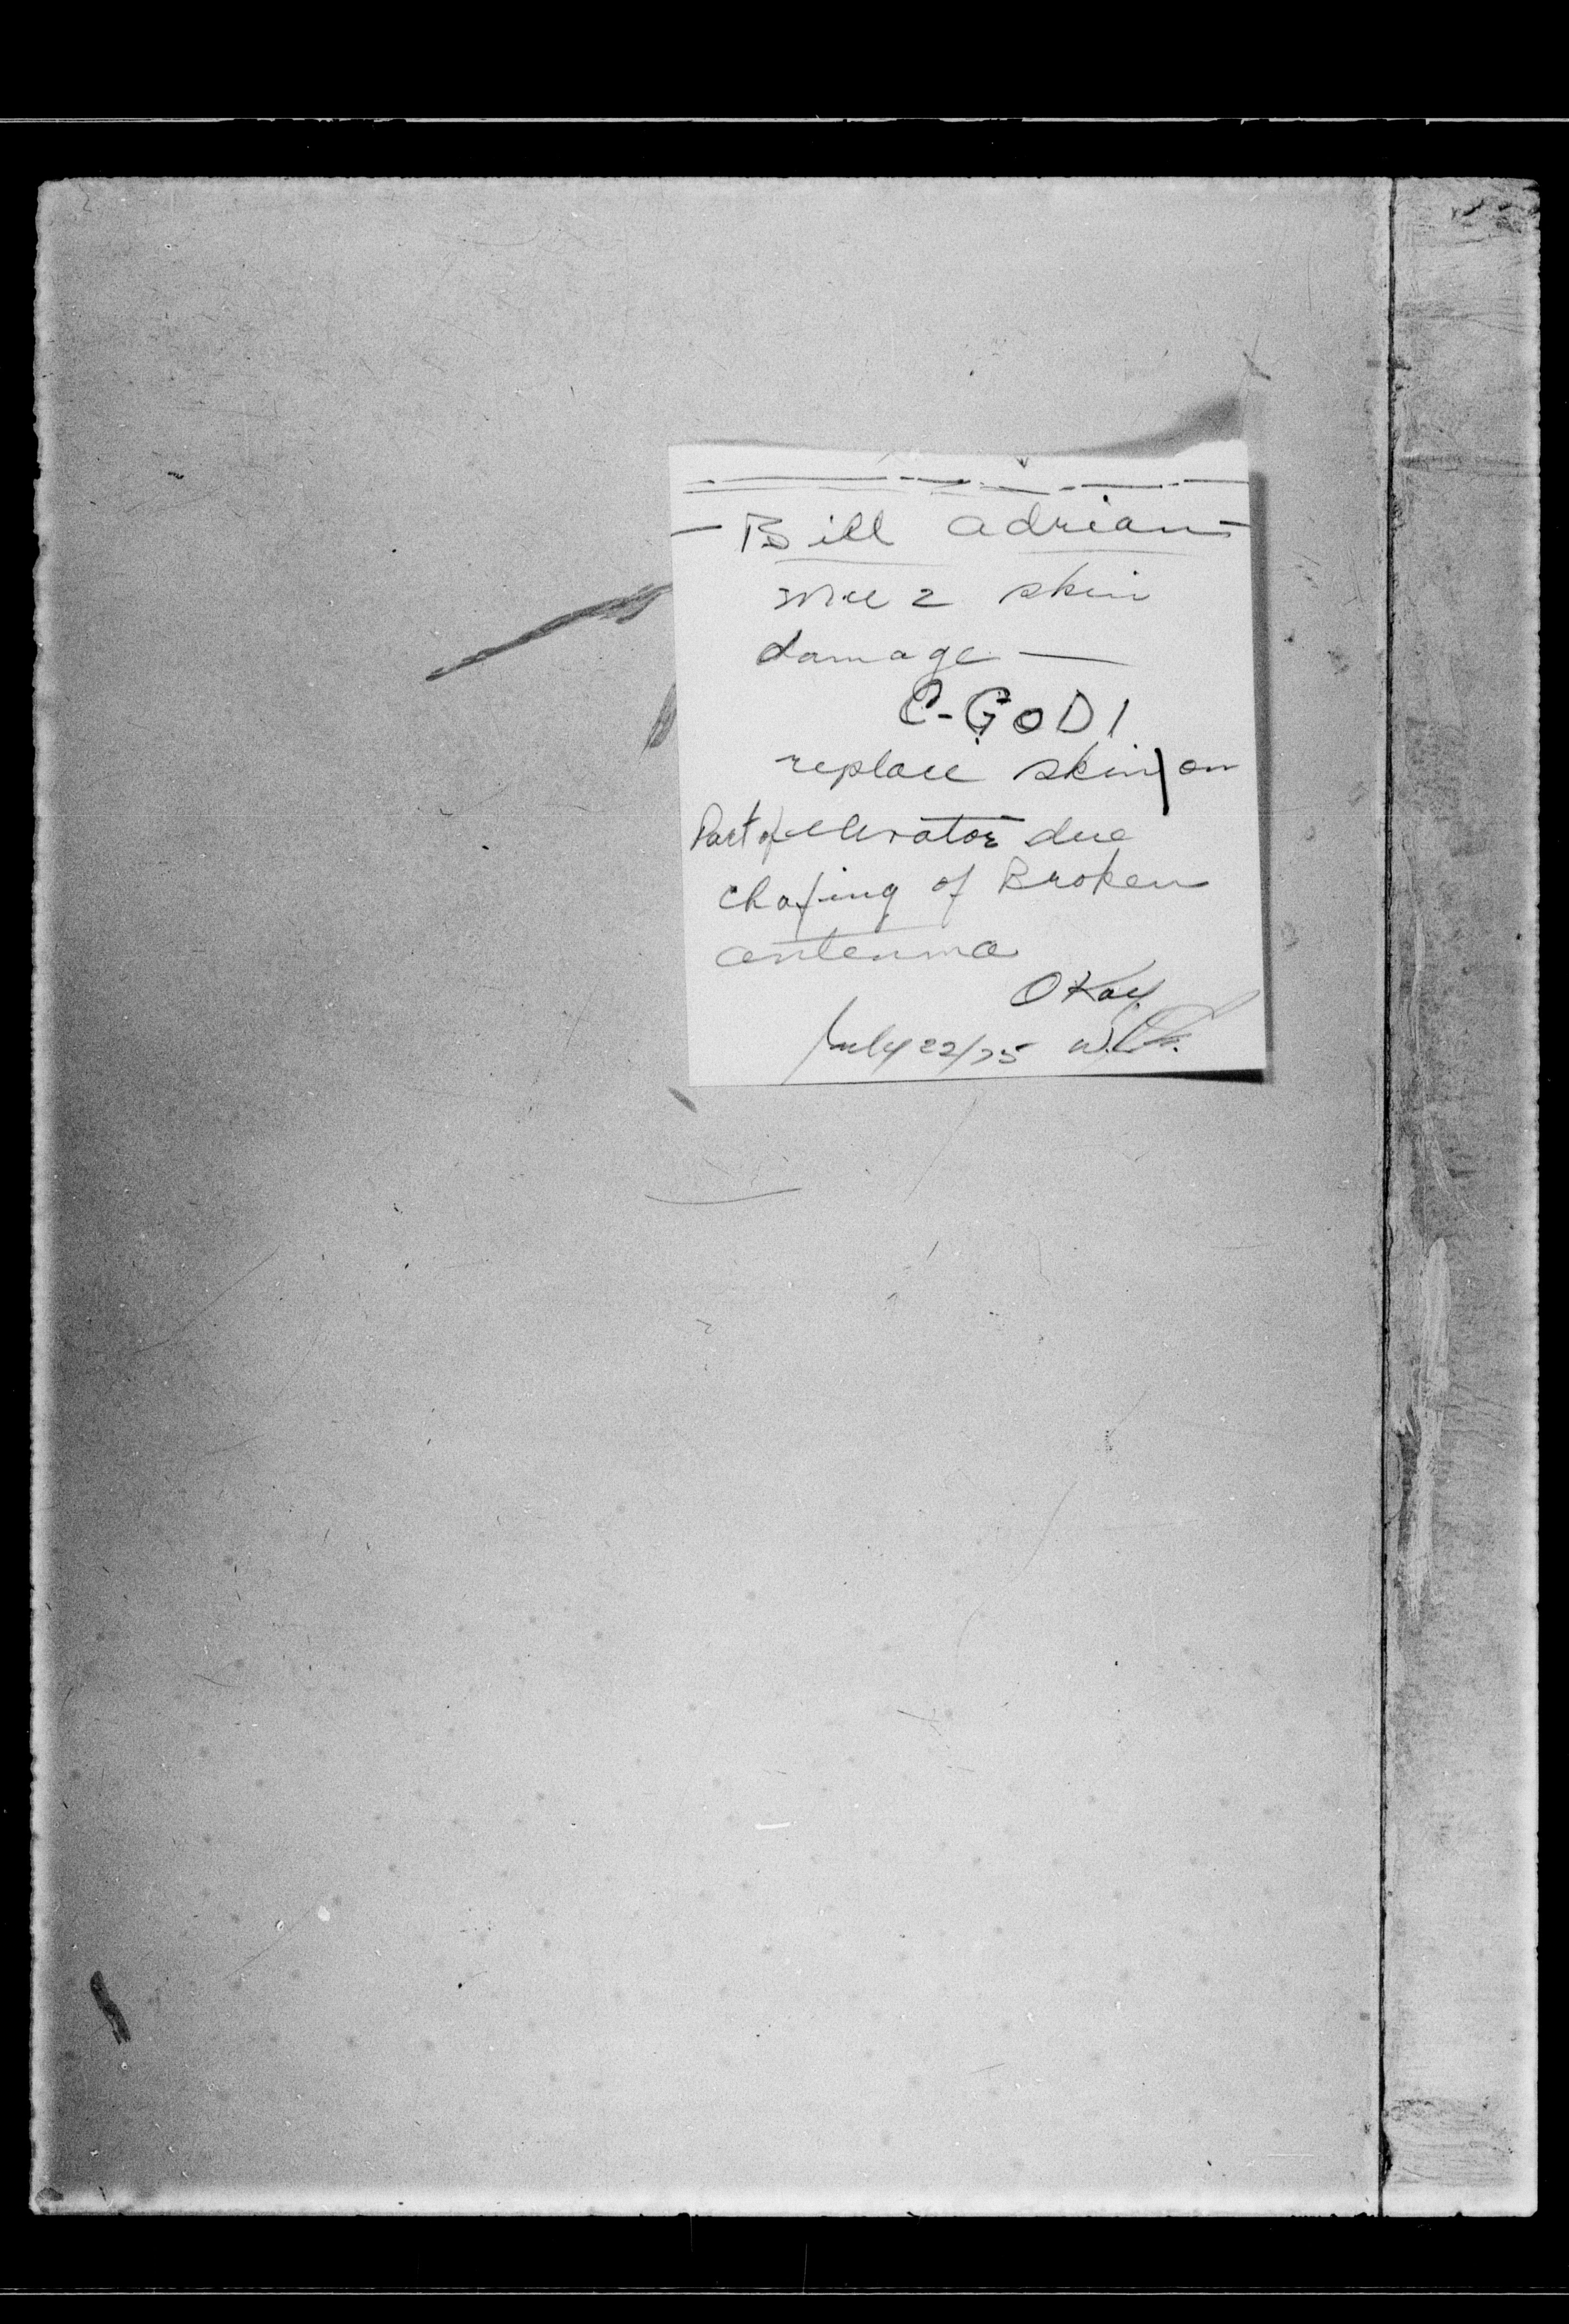 Bill Adrian
skin
damage —
C-GODI
replace skin on
Part of elevator due
chafing of Broken
antenna
OKay
July 22/75